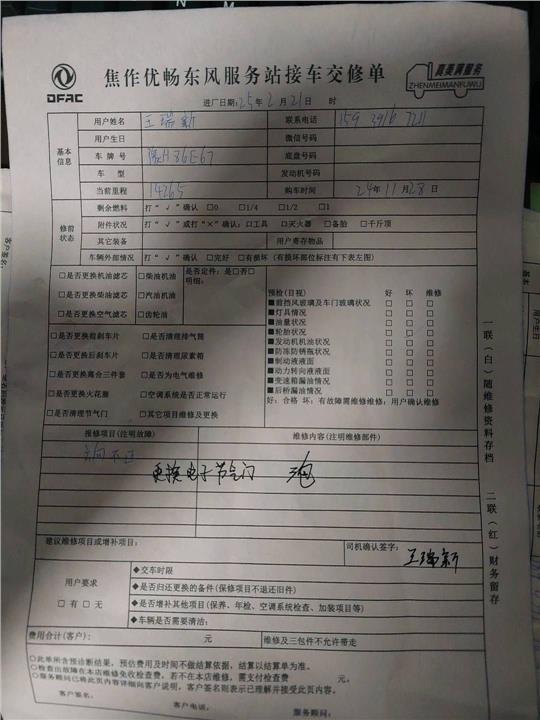 DFAC
焦作优畅东风服务站接车交修单
真美满服务
ZHENMEIMANFUWU
进厂日期:25年2月21日 时
基本信息
用户姓名 王瑞新 联系电话 159 3916 7211
用户生日 微信号码
车牌号 豫H86E67 底盘号码
车 型 发动机号码
当前里程 14265 购车时间 24年11月28日
修前状态
剩余燃料 打“√”确认 □0 □1/4 □1/2 □1
附件状况 打“√”或打“×”确认:□工具 □灭火器 □备胎 □千斤顶
其它装备 用户寄存物品
车辆外部情况 打“√”确认 □完好 □有损坏(有损坏部位标注有下表左图)
□是否更换机油滤芯 □柴油机油 是否定件:是□否□
□是否更换柴油滤芯 □汽油机油 明细:
□是否更换空气滤芯 □齿轮油
□是否更换前刹车片 □是否清理排气筒
□是否更换后刹车片 □是否清理尿素箱
□是否更换离合三件套 □是否为电气维修
□是否更换火花塞 □空调系统是否正常运行
□是否清理节气门 □其它项目维修及更换
预检(目视) 好 坏 维修
■前挡风玻璃及车门玻璃状况 □ □ □
■灯具情况 □ □ □
■油量状况 □ □ □
■轮胎状况 □ □ □
■发动机机油状况 □ □ □
■防冻防锈瓶状况 □ □ □
■制动液液面 □ □ □
■动力转向液液面 □ □ □
■变速箱漏油情况 □ □ □
■后桥漏油情况 □ □ □
好:合格 坏:有故障需维修维修:用户确认维修
报修项目(注明故障) 维修内容(注明维修部件)
更换电子节气门
建议维修项目或增补项目: 司机确认签字:
王瑞新
用户要求
□有□无
◆交车时限
◆是否归还更换的备件(保修项目不退还旧件)
◆是否增补其他项目(保养、年检、空调系统检查、加装项目等)
◆车辆是否需要清洁:
费用合计(客户): 元 维修及三包件不允许带走
○此单所含预诊断结果,预估费用及时间不做结算依据,结算以结算单为准。
○检查出故障在本店维修免收检查费,若不在本店维修,需支付检查费 元。
○服务顾问已将此页内容详细向客户说明,客户签名则表示已理解并接受此页内容。
客户签名: 客户电话: 服务顾问:
一联(白)随维修资料存档
二联(红)财务留存
客户签名: